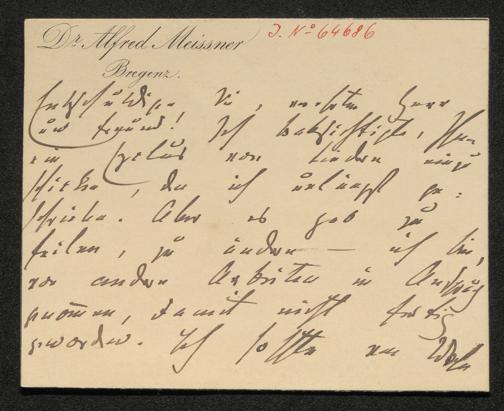 Dr. Alfred Meissner
J. No 64686
Bregenz.
Entschuldigen Sie, verehrter Herr
und Freund! Ich beabsichtigte, Ihnen
ein Cyclus von Liedern
schicken, den ich unlängst ge-
schrieben. Aber es gab zu
feilen, zu ändern — ich bin,
von andern Arbeiten in Anspruch
genommen, damit nicht fertig
geworden. Ich hoffte